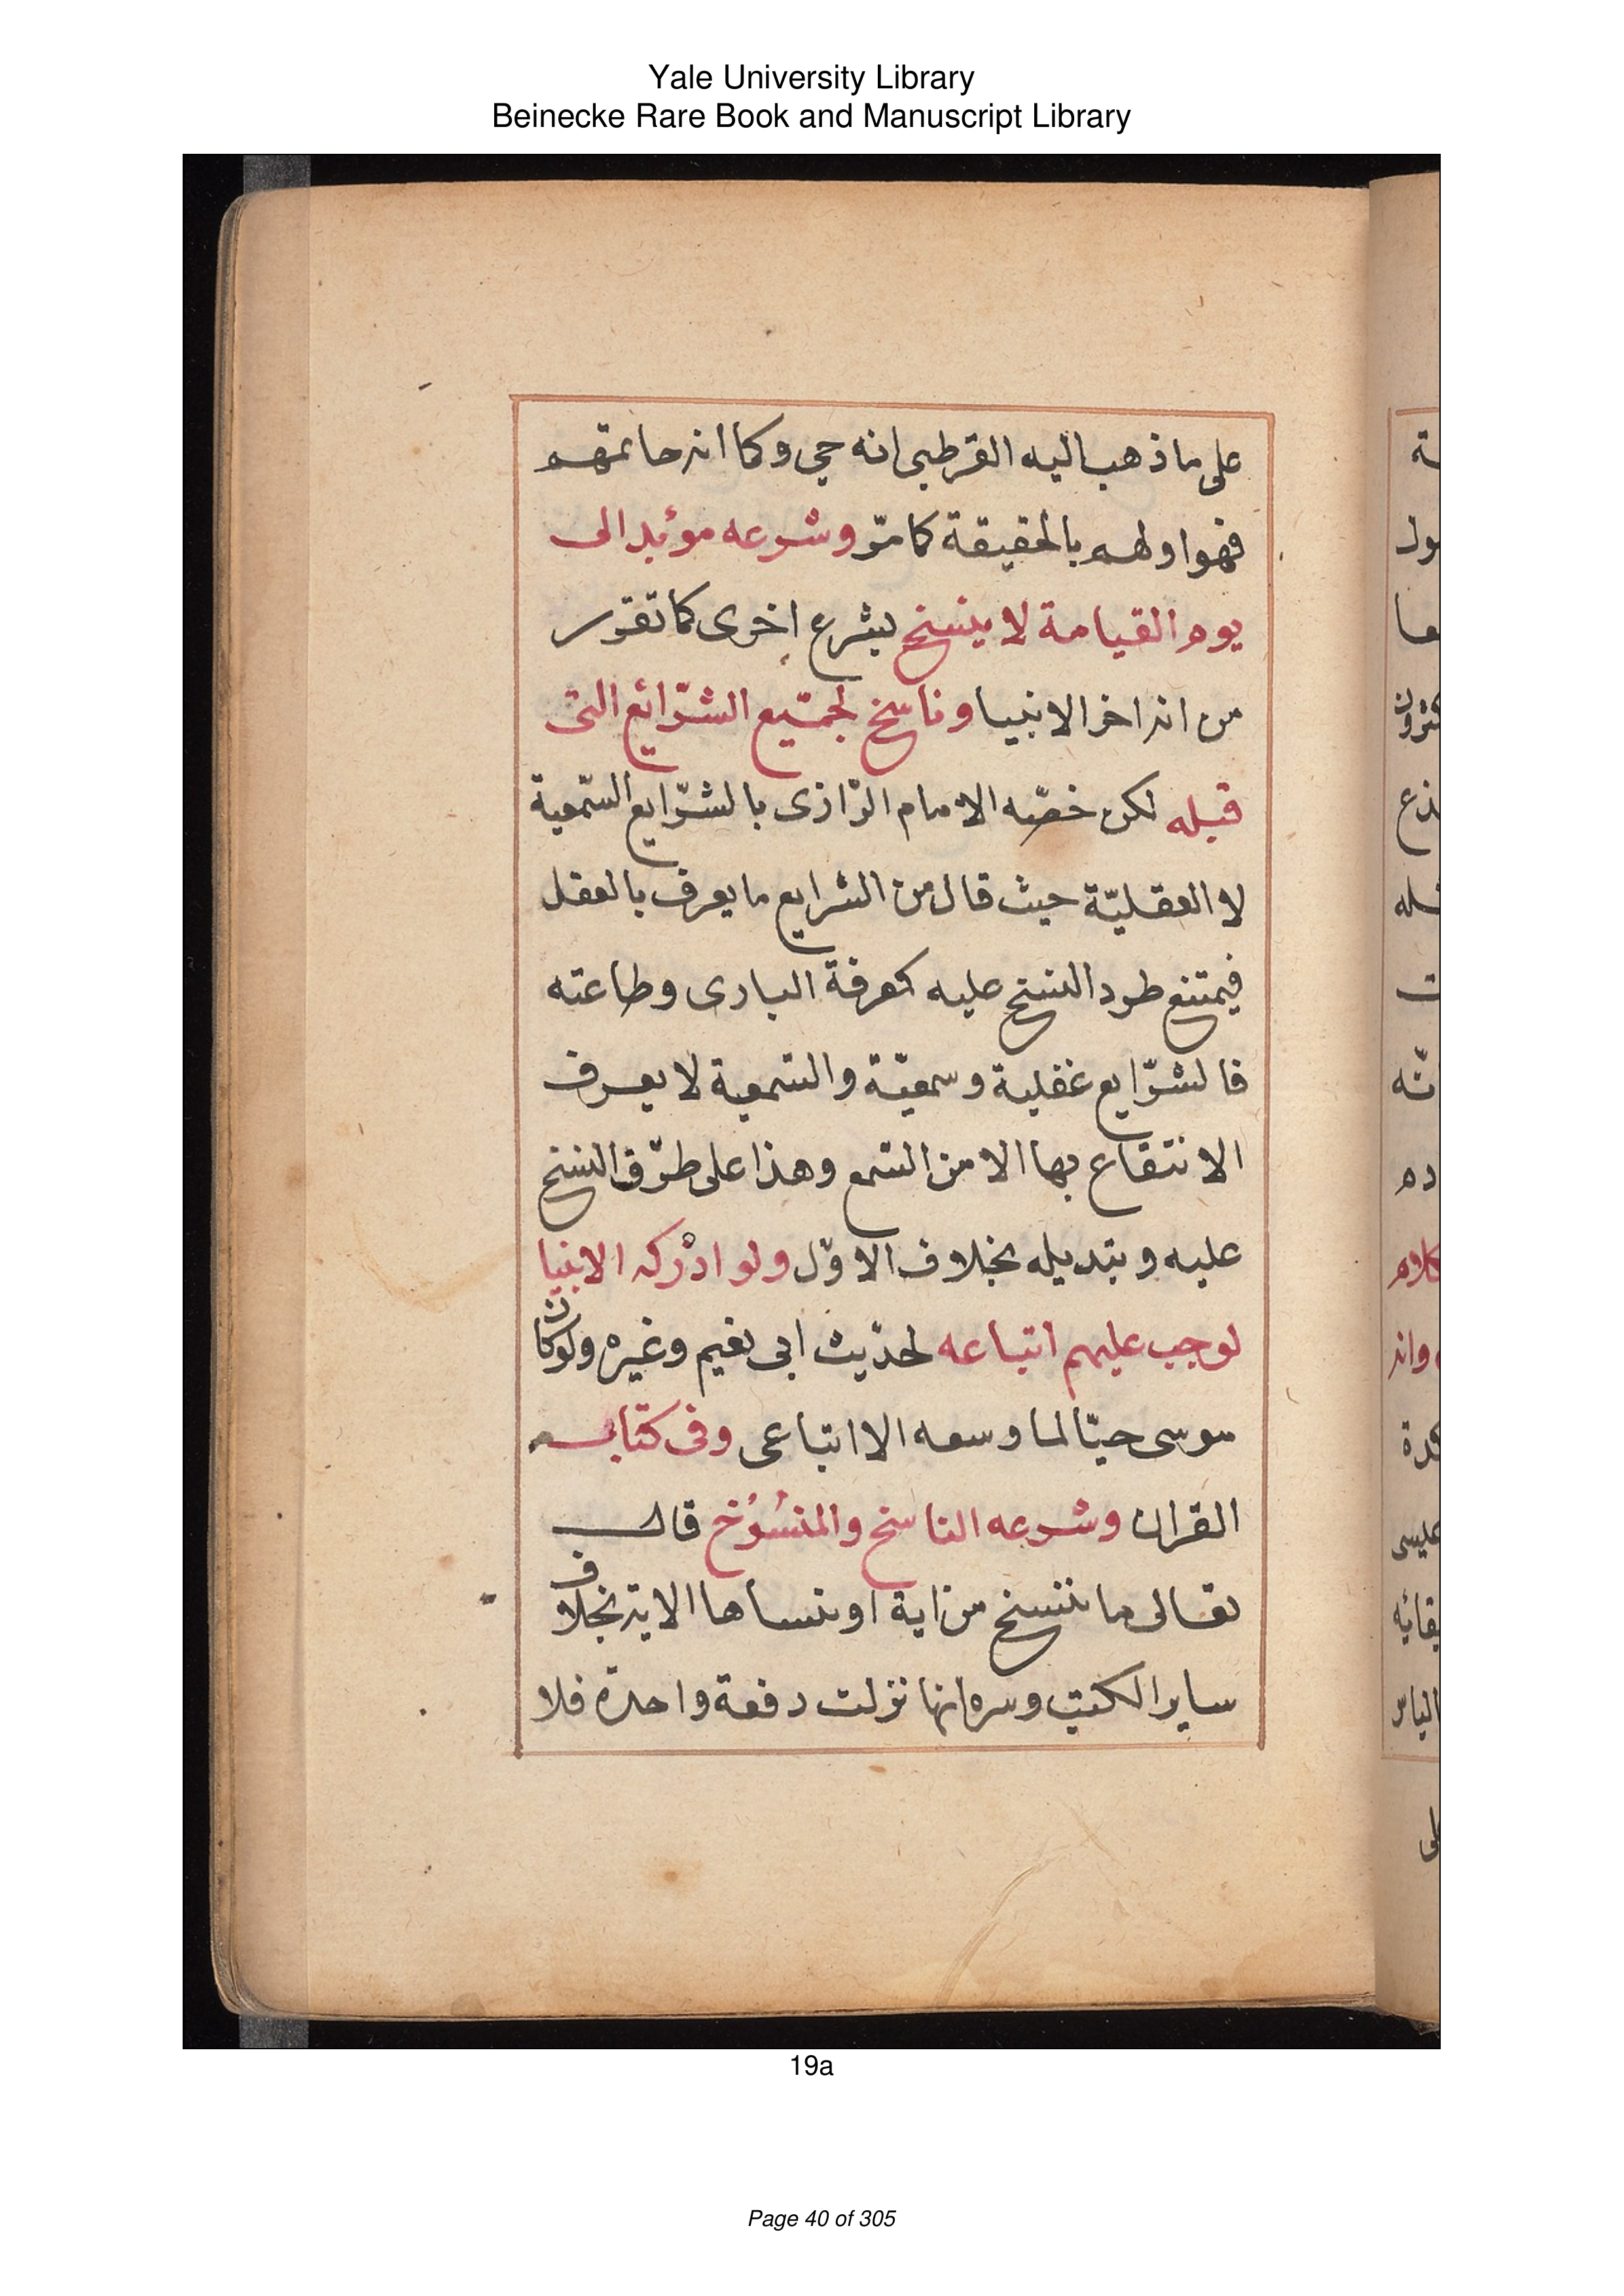 Yale University Library
Beinecke Rare Book and Manuscript Library
على ما ذهب اليه القرطبى انه حى وكما انه خاتمهم
فهو اولهم بالحقيقة كما مرّ وشرعه مؤبد الى
يوم القيامة لا ينسخ بشرع اخرى كما تقرر
من انه اخر الانبيا وناسخ لجميع الشرّائع التى
قبله لكن خصّه الامام الرّازى بالشرّايع السّمعية
لا العقليّة حيث قال من الشرايع ما يعرف بالعقل
فيمتنع طرد النسخ عليه كمعرفة البارى وطاعته
فالشرّايع عقلية وسمعيّة والسّمعية لا يعرف
الانتفاع بها الا من السّمع وهذا على طرّق النسخ
عليه وتبديله بخلاف الاوّل ولو ادْركه الانبيا
لوجب عليهم اتباعه لحدّيث ابى نعيم وغيره ولو كان
موسى حيّا لما وسعه الا اتباعى وفى كتابه
القران وشرعه الناسخ والمنسُوُخ قال
تعالى ما ننسخ من اية او ننسأها الاية بخلاف
ساير الكتب وسره انها نزلت دفعة واحدة فلا
19a
Page 40 of 305